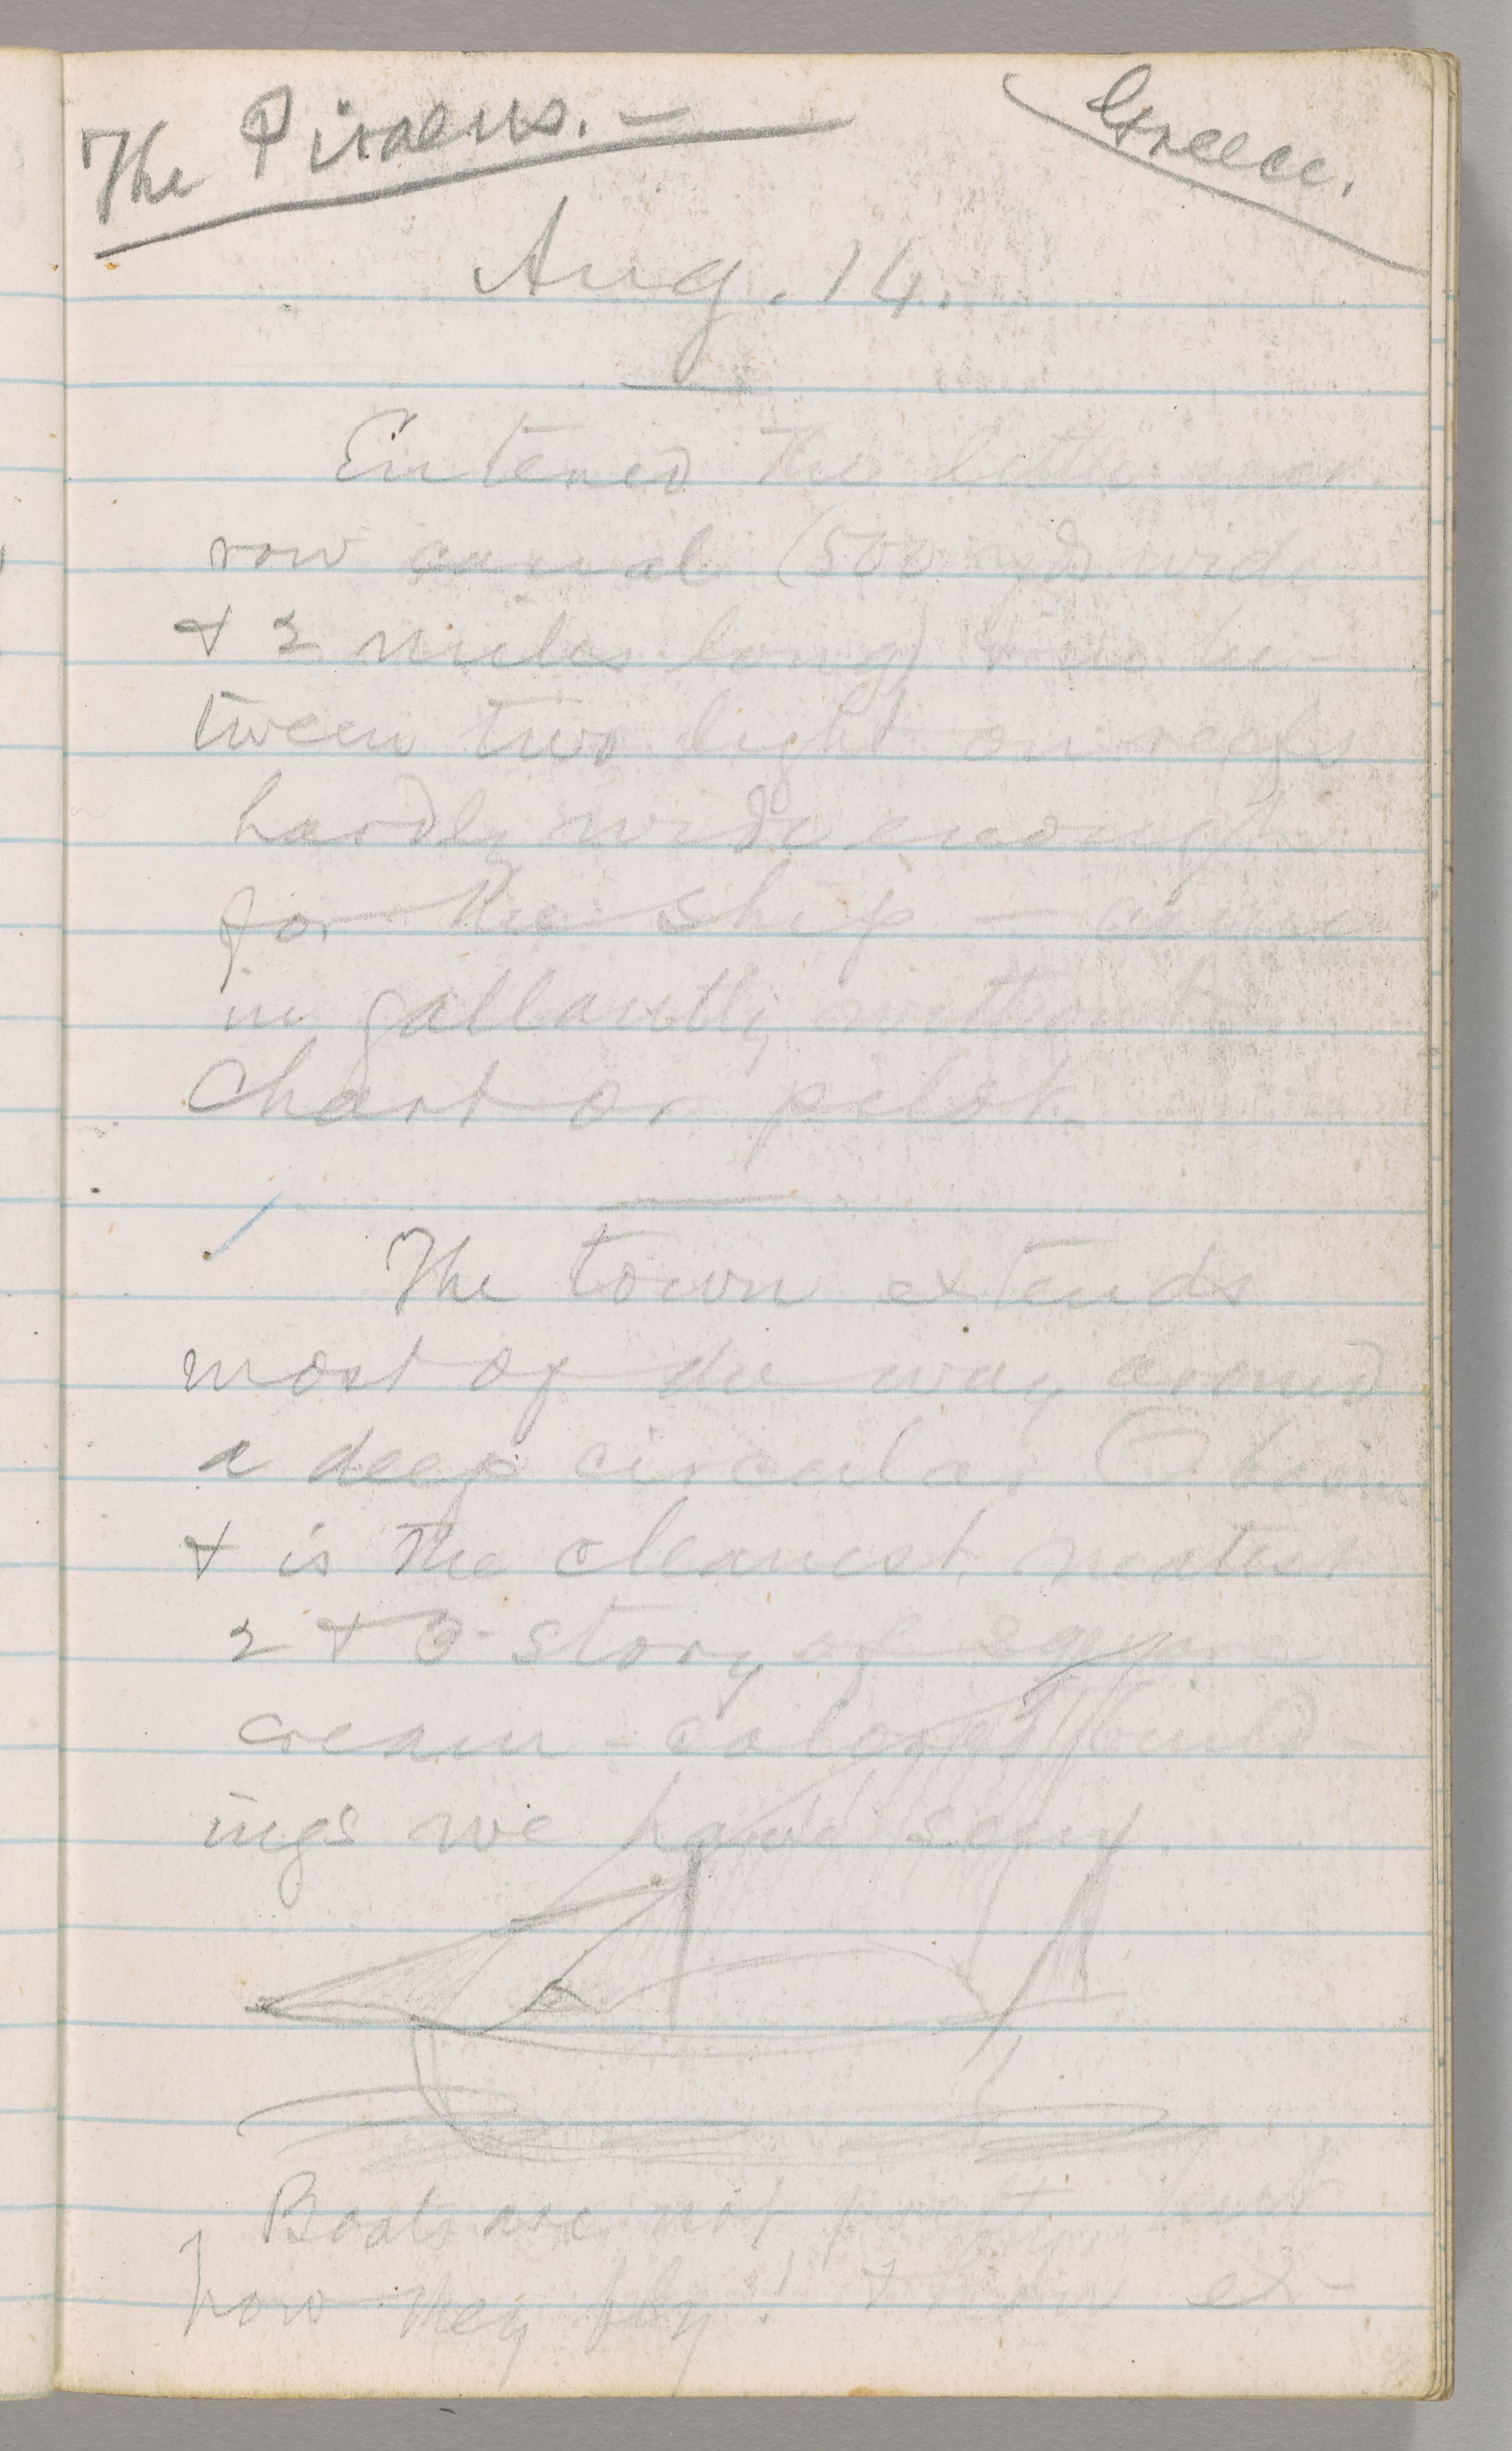 The Piraeus. —
Greece.
Aug. 14.
Entered the little nar
row canal (500 yds wide
& 2 miles long) & in be-
tween two light on reefs
hardly wide enough
for the ship — came
in gallantly without
Chart or pilot.
The town extends
most of the way around
a deep circular
& is the cleanest, neatest
2 & 3-story, of square
cream-colored build-
ings we have seen.
Boats are not pretty, but
how they fly! & how ex-